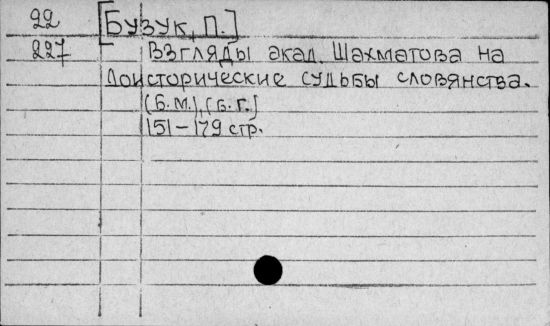 22 [БУЗУК, П.]
227 Взгляды акад. Шахматова на
доисторические судьбы словянства.
(Б.м.), (б.г.]
151-179 стр.